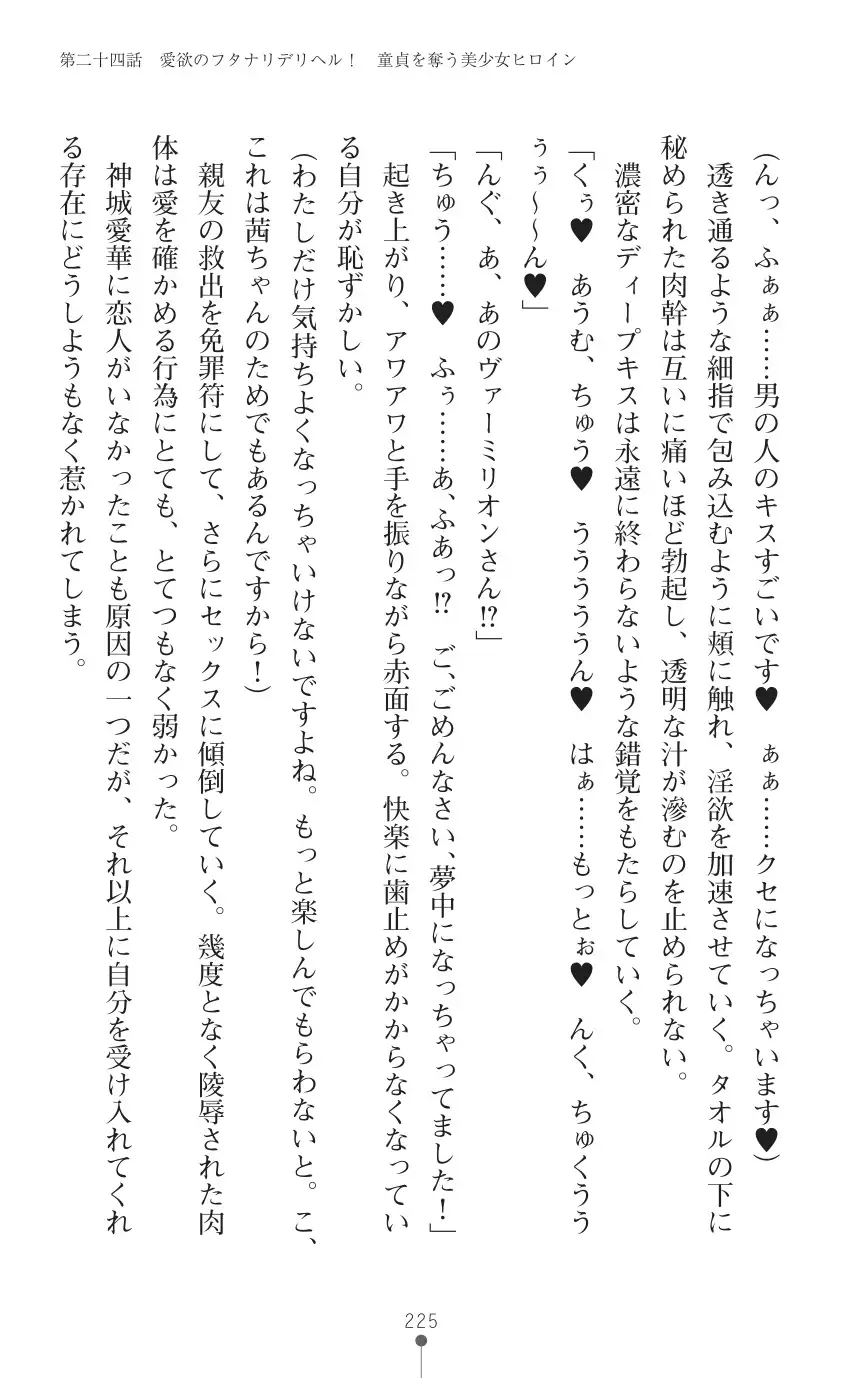 第二十四話　愛欲のフタナリデリヘル！　童貞を奪う美少女ヒロイン
（んっ、ふぁぁ……男の人のキスすごいです♥　ぁぁ……クセになっちゃいます♥）
　透き通るような細指で包み込むように頬に触れ、淫欲を加速させていく。タオルの下に
秘められた肉幹は互いに痛いほど勃起し、透明な汁が滲むのを止められない。
　濃密なディープキスは永遠に終わらないような錯覚をもたらしていく。
「くぅ♥　あうむ、ちゅう♥　うううううん♥　はぁ……もっとぉ♥　んく、ちゅくうう
ぅぅ～～ん♥」
「んぐ、あ、あのヴァーミリオンさん!?」
「ちゅう……♥　ふぅ……あ、ふあっ!?　ご、ごめんなさい、夢中になっちゃってました！」
　起き上がり、アワアワと手を振りながら赤面する。快楽に歯止めがかからなくなってい
る自分が恥ずかしい。
（わたしだけ気持ちよくなっちゃいけないですよね。もっと楽しんでもらわないと。こ、
これは茜ちゃんのためでもあるんですから！）
　親友の救出を免罪符にして、さらにセックスに傾倒していく。幾度となく陵辱された肉
体は愛を確かめる行為にとても、とてつもなく弱かった。
　神城愛華に恋人がいなかったことも原因の一つだが、それ以上に自分を受け入れてくれ
る存在にどうしようもなく惹かれてしまう。
225